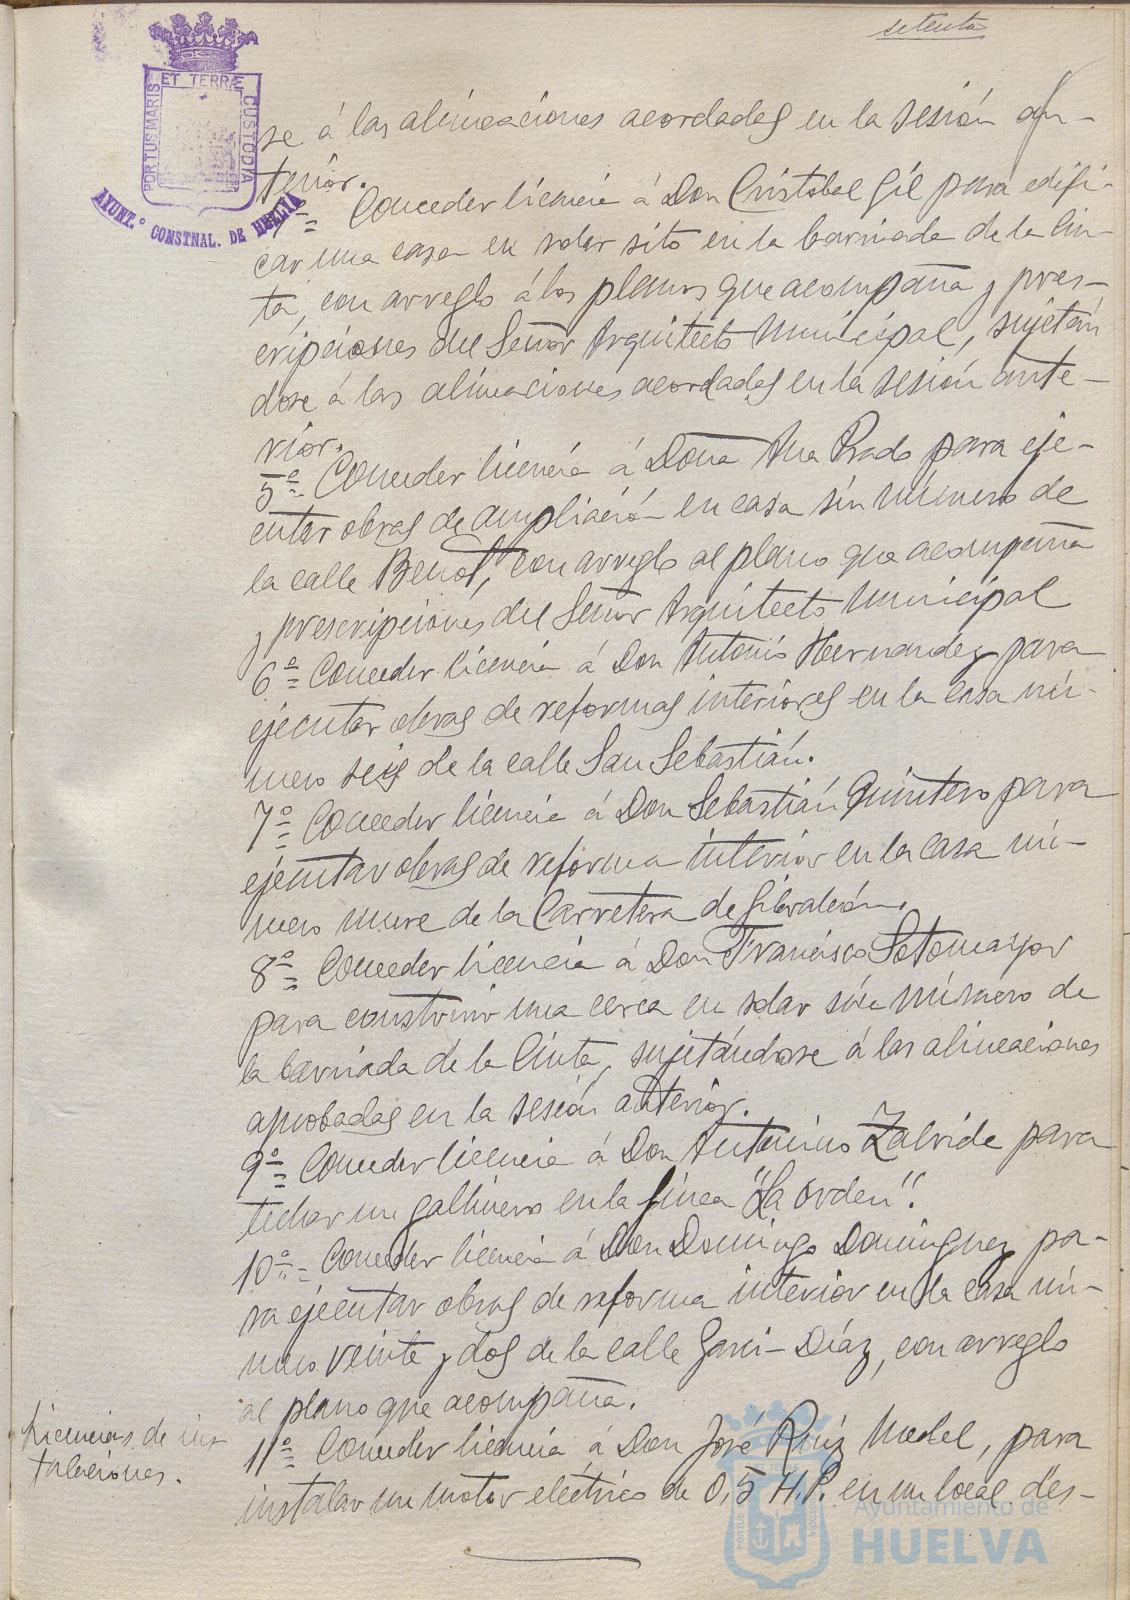 setenta
PORTUS MARIS
ET TERRÆ
CUSTODIA
AYUNT.º CONSTNAL. DE HUELVA
se á las alineaciones acordadas en la sesión an-
terior.
Conceder licencia á Don Cristobal Gil para edifi-
car una casa en solar sito en la barriada de la Cin-
ta, con arreglo á los planos que acompaña y pres-
cripciones del Señor Arquitecto Municipal, sujetán
dose á las alineaciones acordadas en la sesión ante-
rior.
5º= Conceder licencia á Doña Ana Prado para eje-
cutar obras de ampliación en casa sin número de
la calle Benot, con arreglo al plano que acompaña
y prescripciones del Señor Arquitecto Municipal
6º= Conceder licencia á Don Antonio Hernandez para
ejecutar obras de reformas interiores en la casa nú-
mero seis de la calle San Sebastián.
7º= Conceder licencia á Don Sebastián Quintero para
ejecutar obras de reforma interior en la casa nú-
mero nueve de la Carretera de Gibraleón.
8º= Conceder licencia á Don Francisco Sotomayor
para construir una cerca en solar sin número de
la barriada de la Cinta, sujetándose á las alineaciones
aprobadas en la sesión anterior.
9º= Conceder licencia á Don Antonino Zalvide para
techar un gallinero en la finca "La Orden".
10º= Conceder licencia á Don Domingo Dominguez pa-
ra ejecutar obras de reforma interior en la casa nú-
mero veinte y dos de la calle Garci-Díaz, con arreglo
al plano que acompaña.
Licencias de ins
talaciones.
11º= Conceder licencia á Don José Ruiz Medel, para
instalar un motor eléctrico de 0,5 H.P. en un local des-
Ayuntamiento de
HUELVA